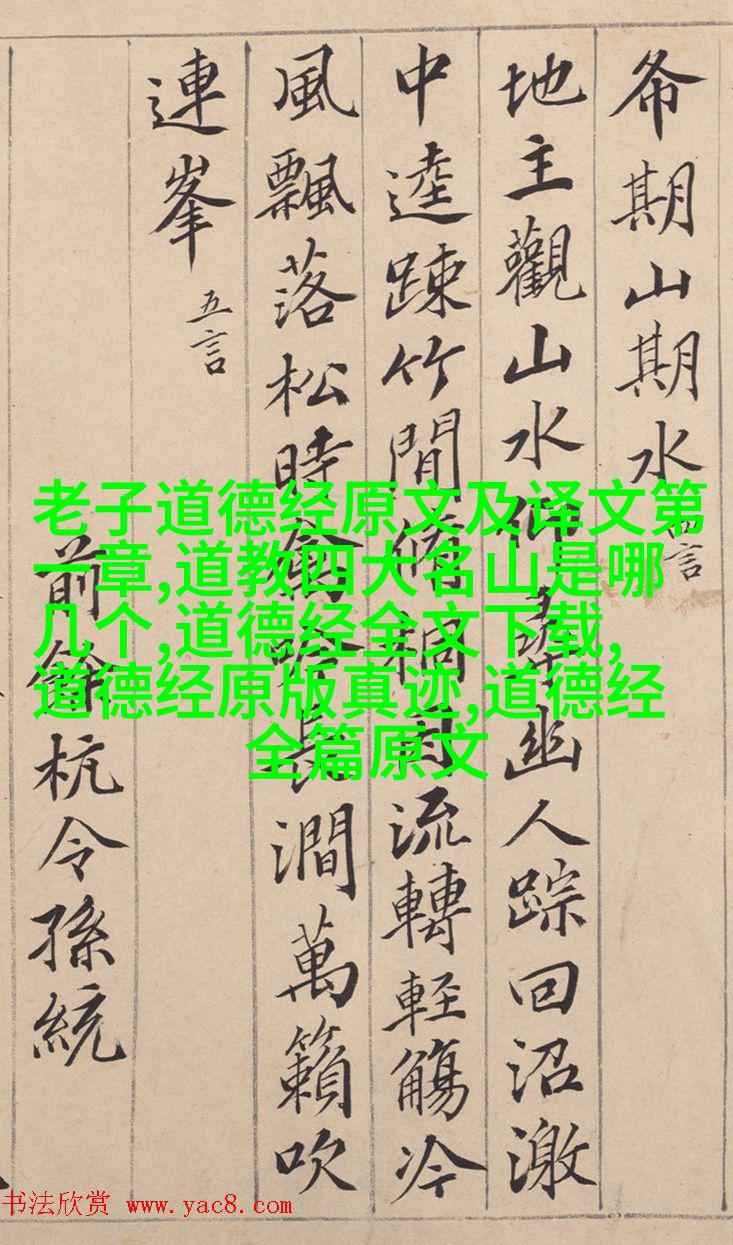 希期山期水 四言
地主觀山水仰尋幽人踪回沼激
中逵踈竹間脩桐因流轉輕觴冷
風飄落松時禽吟長澗萬籟吹
連峯 五言
前餘杭令孫統
老子道德经原文及译文第
一章,道教四大名山是哪
几个,道德经全文下载,
道德经原版真迹,道德经
全篇原文
书法欣赏 www.yac8.com